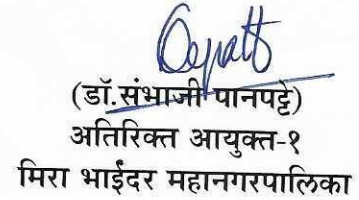 (डॉ.संभाजी पानपट्टे)
अतिरिक्त आयुक्त-१
मिरा भाईंदर महानगरपालिका